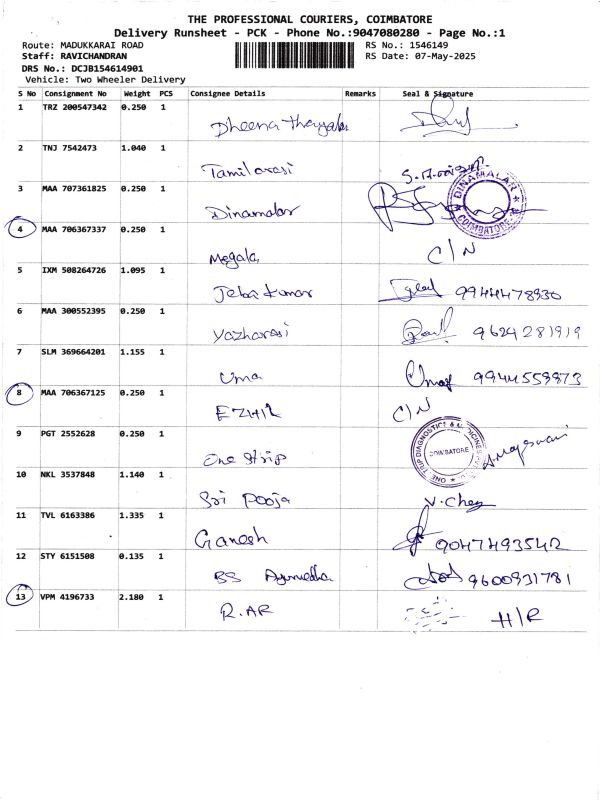 THE PROFESSIONAL COURIERS, COIMBATORE
Delivery Runsheet - PCK - Phone No.:9047080280 - Page No.:1
Route: MADUKKARAI ROAD RS No.: 1546149
Staff: RAVICHANDRAN RS Date: 07-May-2025
DRS No.: DCJB154614901
Vehicle: Two Wheeler Delivery
S No Consignment No Weight PCS Consignee Details Remarks Seal & Signature
1 TRZ 200547342 0.250 1
Dheena thayalan
2 TNJ 7542473 1.040 1
Tamilarasi
3 MAA 707361825 0.250 1
Dinamalar DINAMALAR COIMBATORE
4 MAA 706367337 0.250 1
Megala C/N
5 IXM 508264726 1.095 1
Jeba kumar 9944478930
6 MAA 300552395 0.250 1
Yazharasi 9624281919
7 SLM 369664201 1.155 1
Uma Uma 9944559873
8 MAA 706367125 0.250 1
EZHIL C/N
9 PGT 2552628 0.250 1
One Strip ONE TRIP DIAGNOSTICS & MEDICINES COIMBATORE
10 NKL 3537848 1.140 1
Sri Pooja
11 TVL 6163386 1.335 1
Ganesh 9047493542
12 STY 6151508 0.135 1
BS Ayurvedha 9600931781
13 VPM 4196733 2.180 1
R.AR H/R